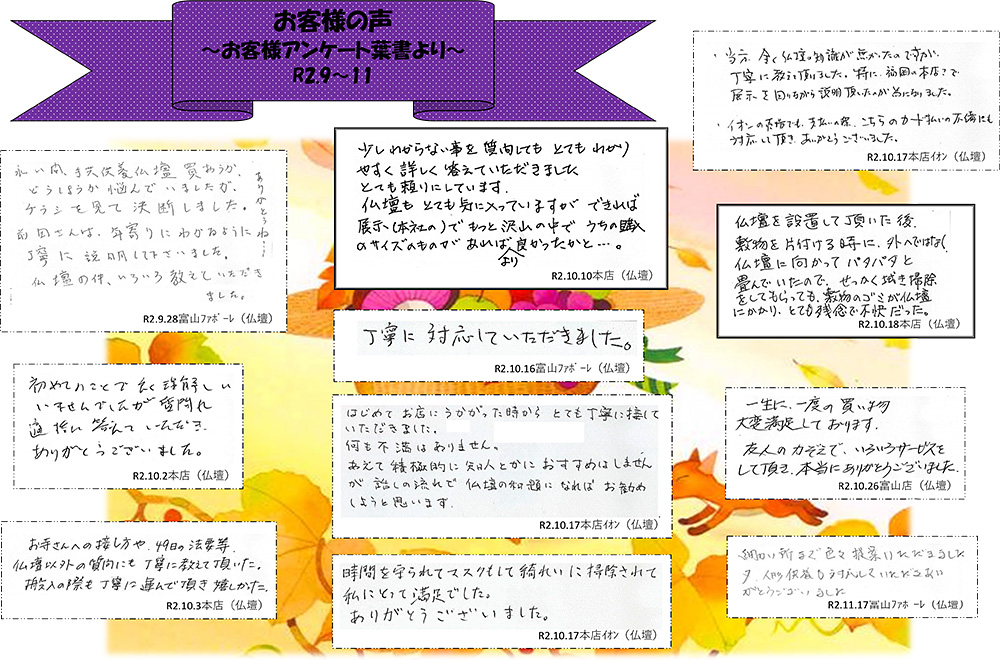 お客様の声
～お客様アンケート葉書より～
R2.9～11
・当方、全く仏壇の知識が無かったのですが、
丁寧に教えて頂けました。特に、福岡の本店?で
展示を回りながら説明頂いたのが為になりました。
・イオンのお店でも、支払いの際、こちらのカード払いの不備にも
対応して頂き、ありがとうございました。
R2.10.17本店ｲｵﾝ（仏壇）
永い間、
仏壇買おうか、
どうしようか悩んでいましたが、
チラシを見て決断しました。
前田さんは、年寄りにわかるように
丁寧に説明して下さいました。
仏壇の件、いろいろ教えていただき
ました。
ありがとうね…
R2.9.28富山ﾌｧﾎﾞｰﾚ（仏壇）
少しわからない事を質問しても とてもわかり
やすく詳しく答えていただきました
とても頼りにしています。
仏壇も とても気に入っていますが できれば
展示（本社の）で もっと沢山の中で うちの
のサイズのものがあれば より良かったかと…。
R2.10.10本店（仏壇）
仏壇を設置して頂いた後、
敷物を片付ける時に、外へではなく、
仏壇に向かってパタパタと
畳んでいたので、せっかく拭き掃除
をしてもらっても、敷物のゴミが仏壇
にかかり、とても残念で不快だった。
R2.10.18本店（仏壇）
丁寧に対応していただきました。
R2.10.16富山ﾌｧﾎﾞｰﾚ（仏壇）
初めてのことで よく理解して
いませんでしたが 質問に
適切に答えていただき
ありがとうございました。
R2.10.2本店（仏壇）
はじめてお店にうかがった時から とても丁寧に接して
いただきました。
何も不満はありません。
あえて積極的に知人とかにおすすめはしません
が 話しの流れで 仏壇の話題になればお勧め
しようと思います。
R2.10.17本店ｲｵﾝ（仏壇）
一生に、一度の買い物
大変満足しております。
友人の力ぞえで、いろいろサービスを
して頂き、本当にありがとうございました。
R2.10.26富山店（仏壇）
お寺さんへの接し方や、49日の法要等、
仏壇以外の質問にも丁寧に教えて頂いた。
搬入の際も丁寧に運んで頂き嬉しかった。
R2.10.3本店（仏壇）
時間を守られてマスクもして綺れいに掃除されて
私にとって満足でした。
ありがとうございました。
R2.10.17本店ｲｵﾝ（仏壇）
細かい所まで色々提案いただきました
人形供養も対応していただきあり
がとうございました
R2.11.17富山ﾌｧﾎﾞｰﾚ（仏壇）